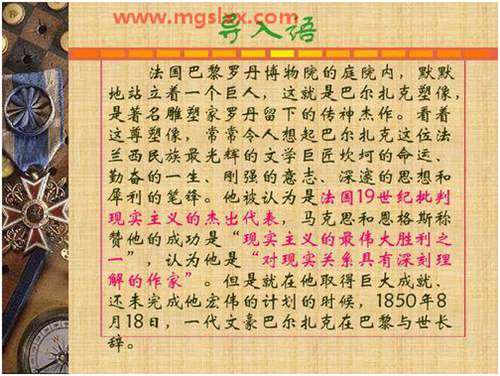 www.mgslyx.com
导入语
法国巴黎罗丹博物院的庭院内，默默
地站立着一个巨人，这就是巴尔扎克塑像，
是著名雕塑家罗丹留下的传神杰作。看着
这尊塑像，常常令人想起巴尔扎克这位法
兰西民族最光辉的文学巨匠坎坷的命运、
勤奋的一生、刚强的意志、深邃的思想和
犀利的笔锋。他被认为是法国19世纪批判
现实主义的杰出代表，马克思和恩格斯称
赞他的成功是“现实主义的最伟大胜利之
一”，认为他是“对现实关系具有深刻理
解的作家”。但是就在他取得巨大成就、
还未完成他宏伟的计划的时候，1850年8
月18日，一代文豪巴尔扎克在巴黎与世长
辞。